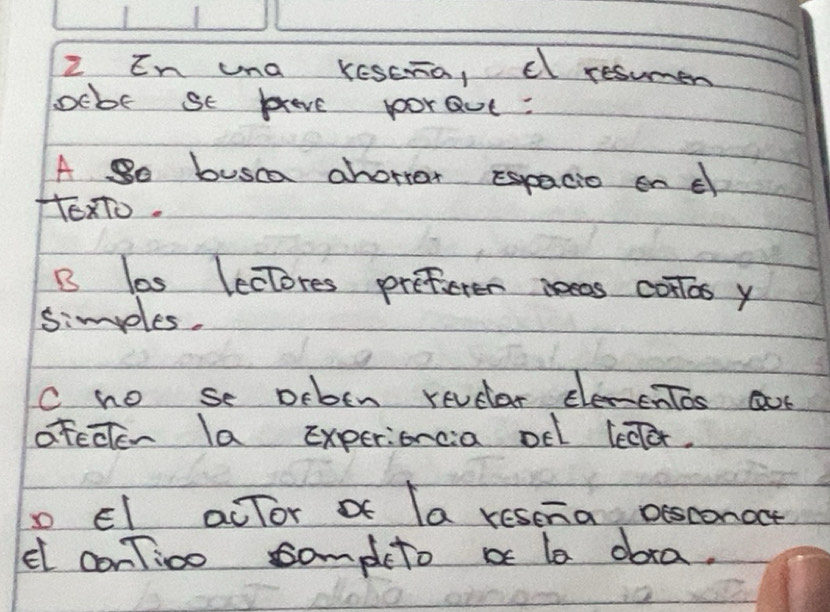 2 En una reseña, el resumen
Debe se breve porque:
A se busca ahorrar espacio en el
texto.
B los lectores prefieren ideas cortas y
simples.
C no se deben revelar elementos que
afecten la experiencia del lector.
D El actor de la reseña desconoce
el contido completo de la obra.